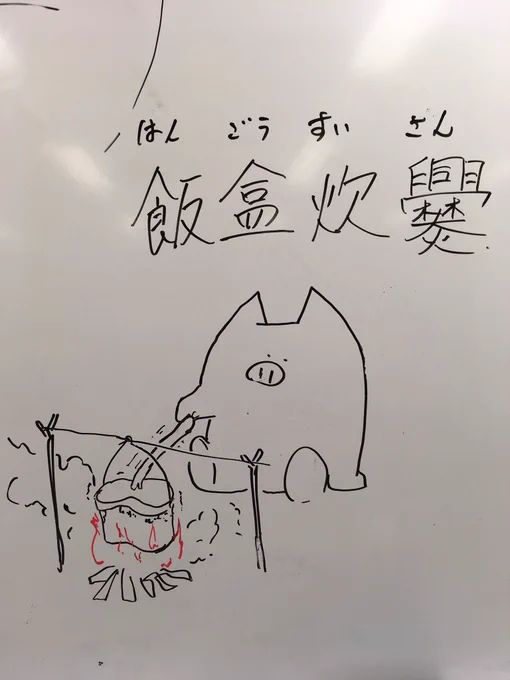 はんごうすいさん
飯盒炊爨